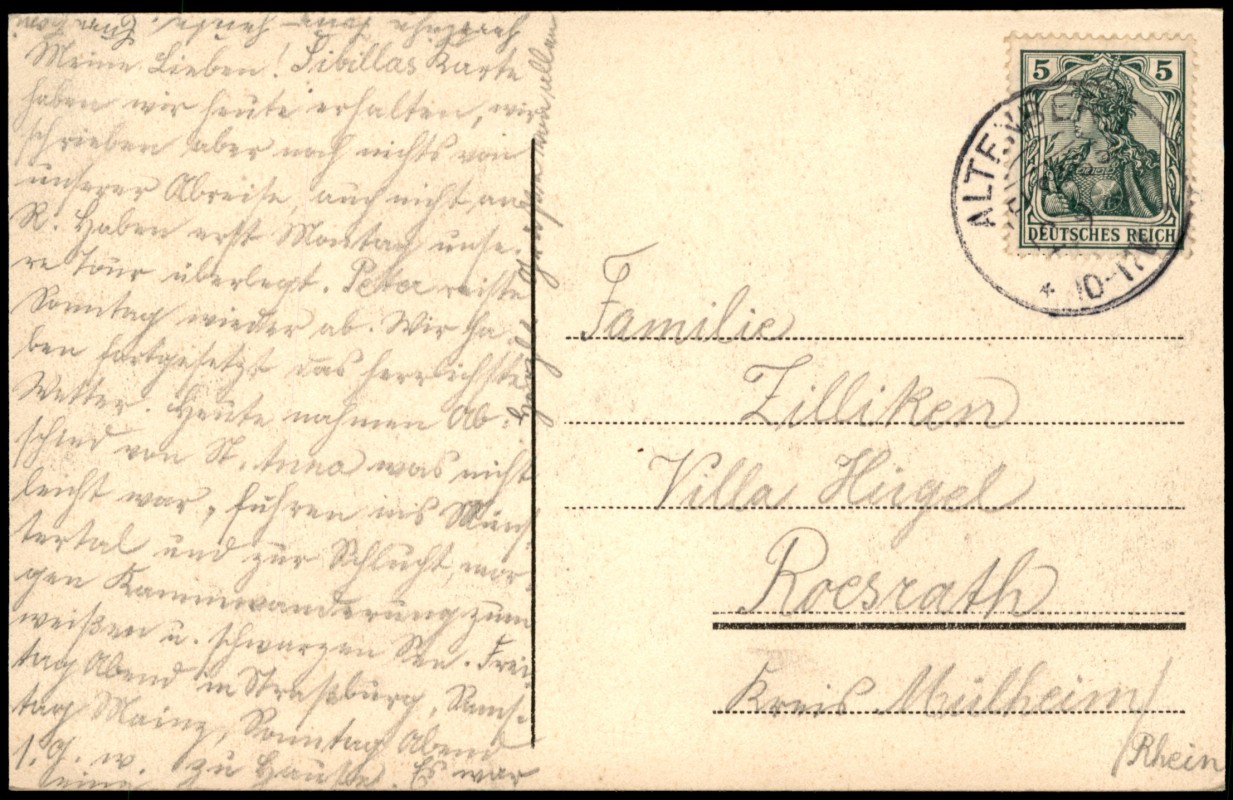 Meine Lieben! Sibillas Karte
haben wir heute erhalten, wir
schrieben aber noch nichts von
unserer Abreise, auch nicht an
R. Haben erst Montag unse-
re Tour überlegt. Peter reiste
Sonntag wieder ab. Wir ha
ben fortgesetzt das herrlichste
Wetter. Heute nahmen Ab-
schied von St. Anna was nicht
leicht war, fuhren ins Müns-
tertal und zur Schlucht, mor-
gen Kammwanderung zum
weißen u. schwarzen See. Frei-
tag Abend in Straßburg, Sams-
tag Mainz, Sonntag Abend
s. G. w. zu Hause. Es war
keine
Herzl. von allen
5 5
DEUTSCHES REICH
ALTENBE
* 10-11V
Familie
Zilliken
Villa Hügel
Roesrath
Kreis Mülheim/
/Rhein